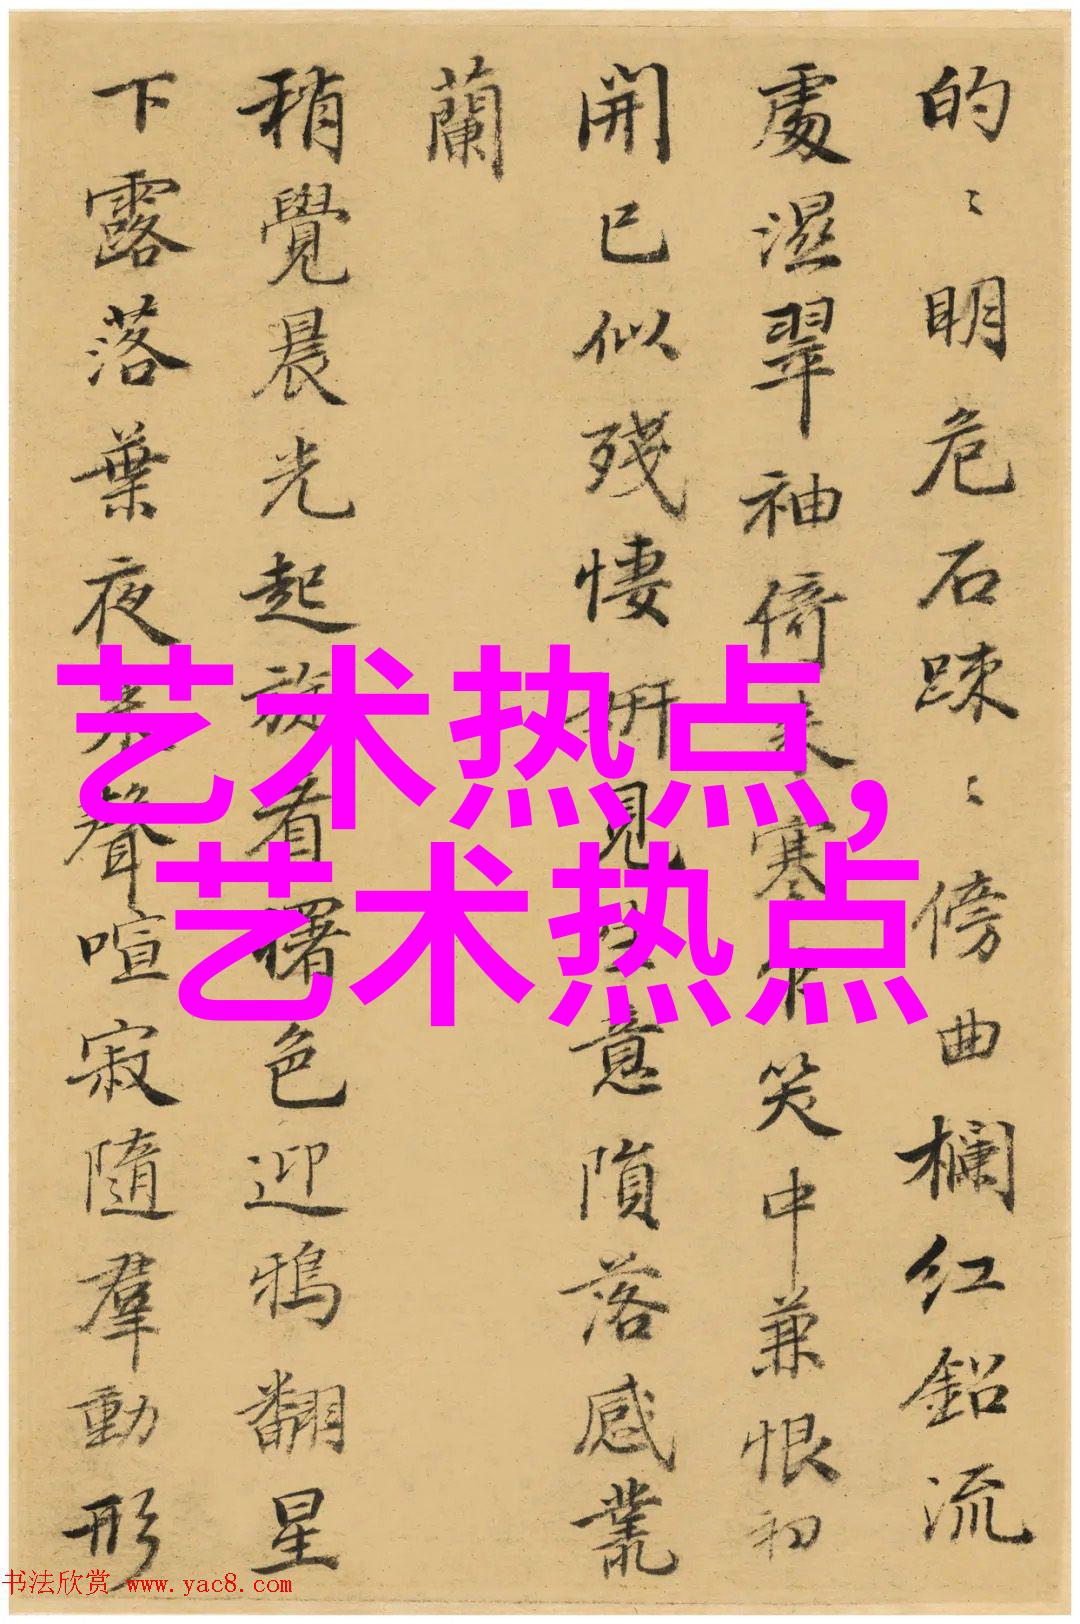 的〻明危石踈〻傍曲欄红鉛流
處濕翠袖倚来寒笑中兼恨初
開已似残悽妍見意隕落感叢
蘭
稍覺晨光起旋看曙色迎鴉翻星
下露落葉夜聲喧寂隨羣動形
艺术热点,
艺术热点
书法欣赏 www.yac8.com